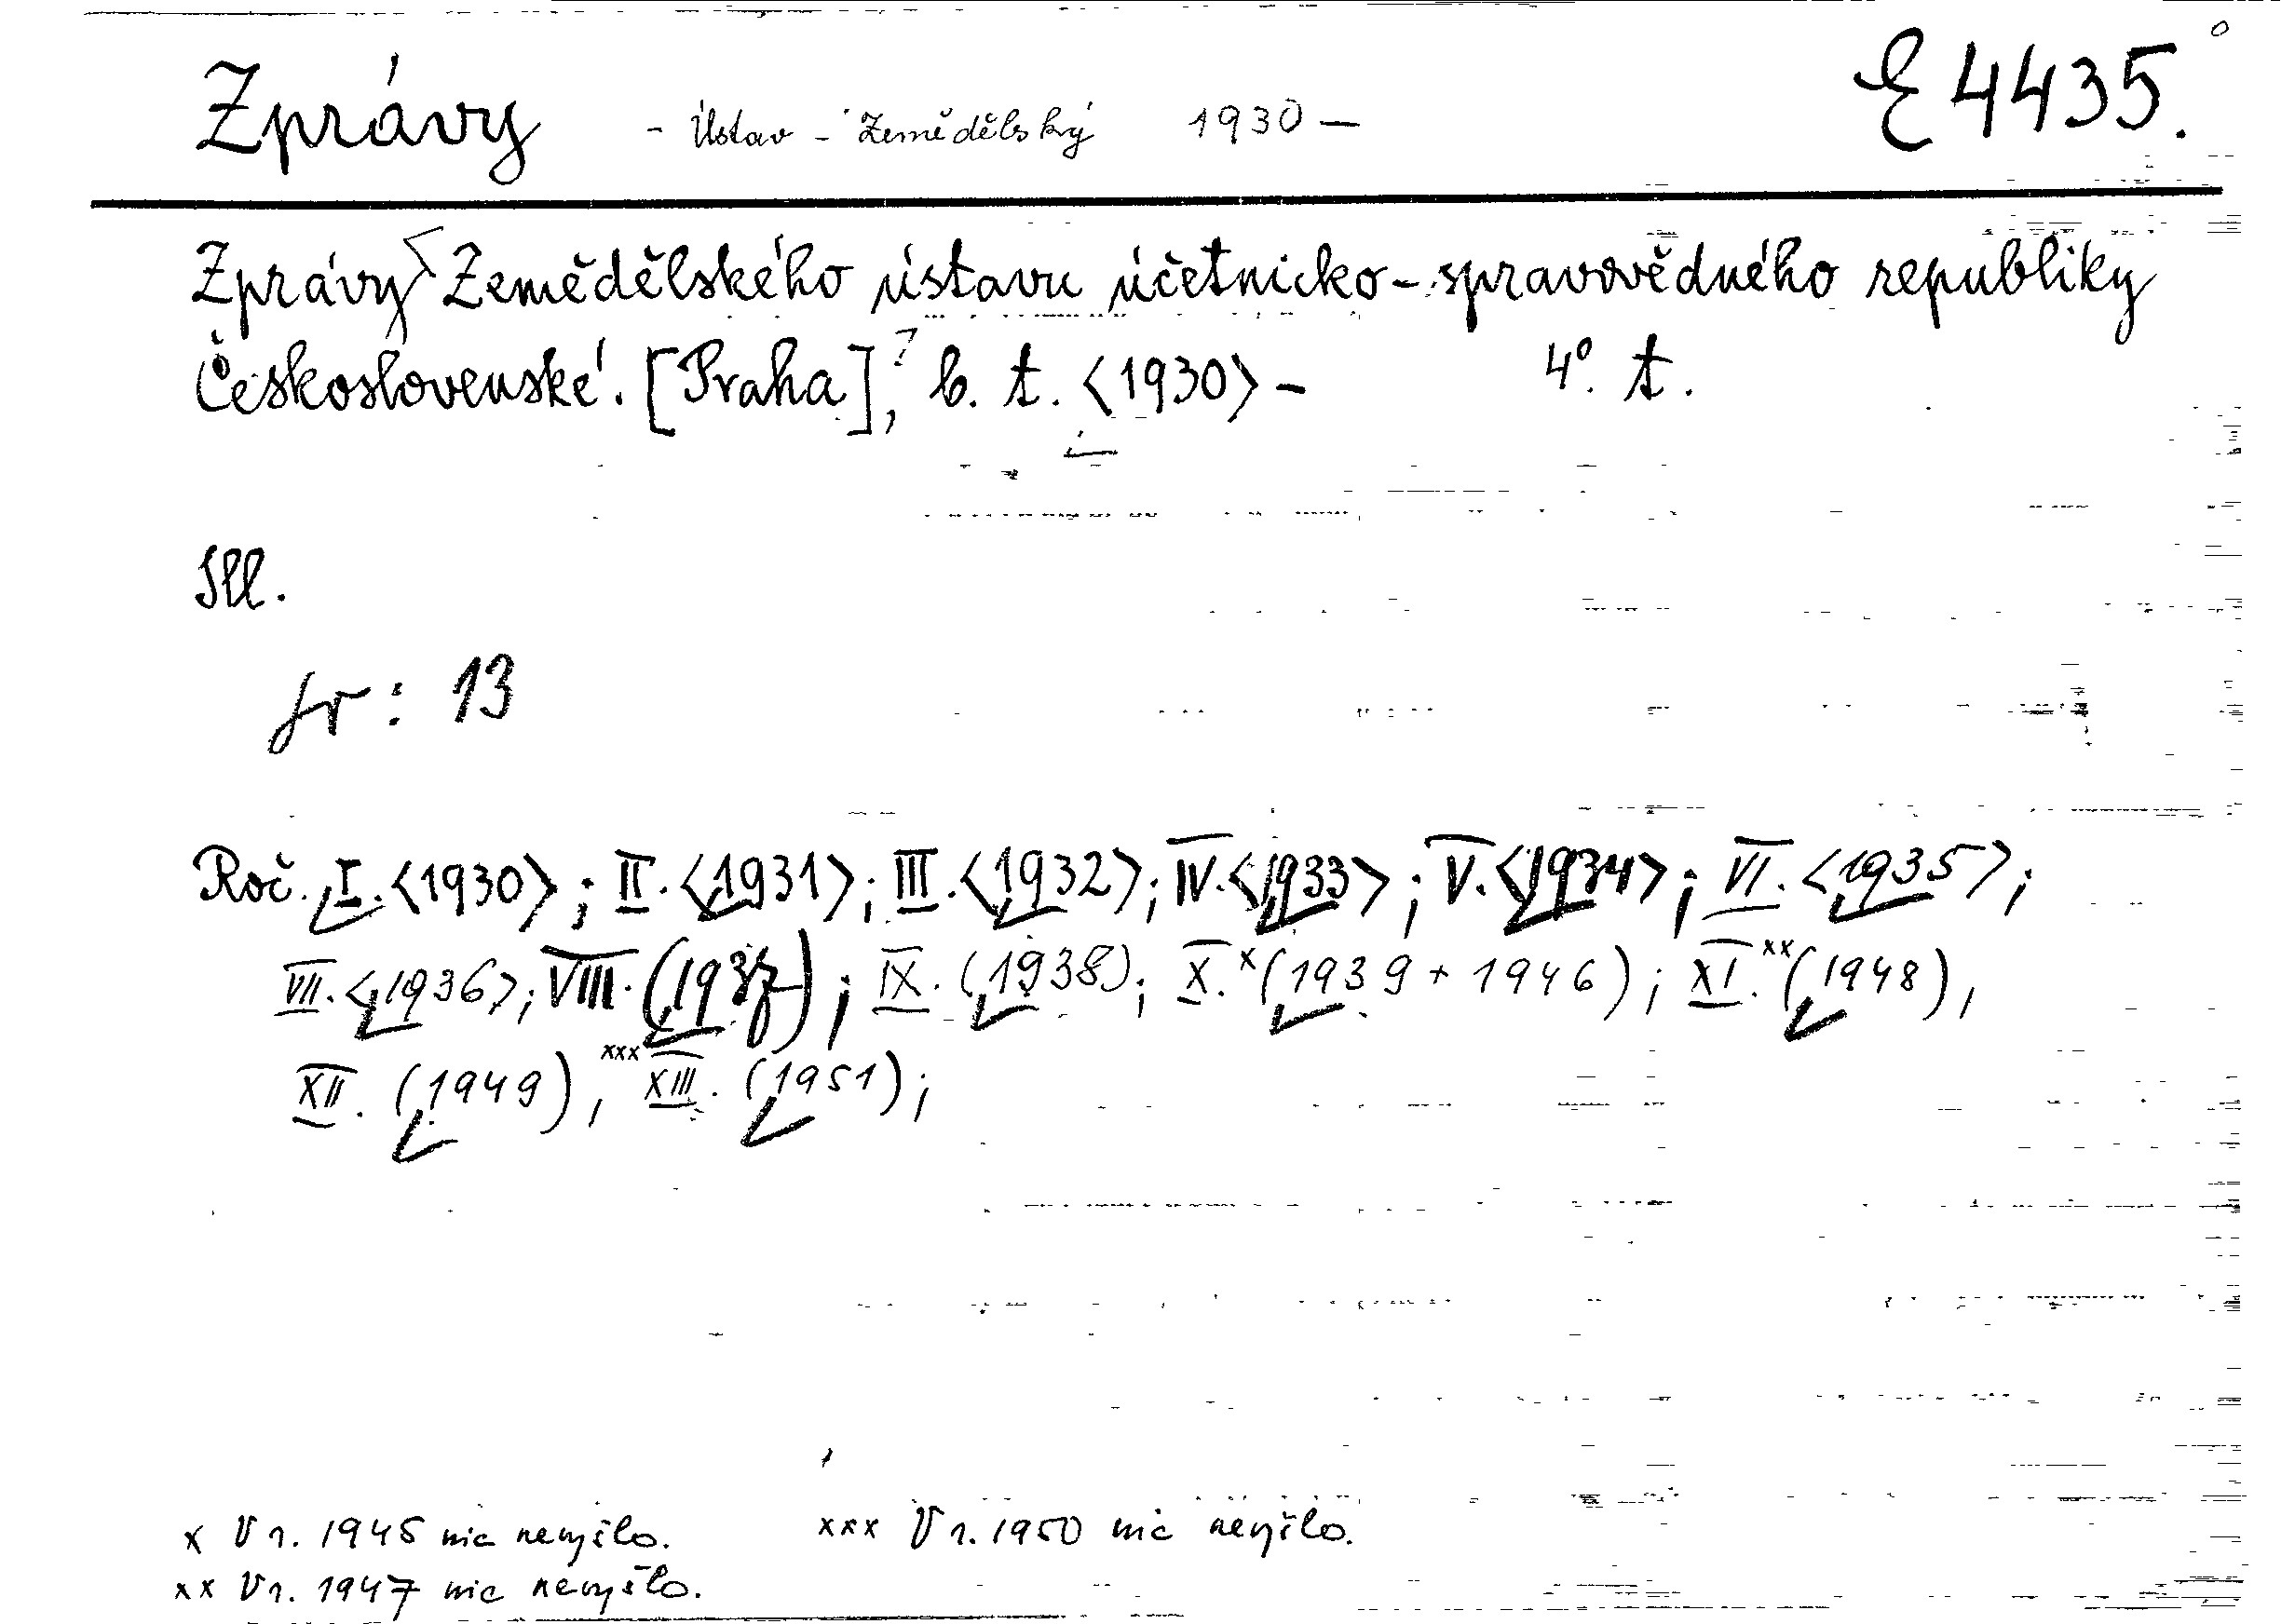 Zprávy - Ústav - Zemědělský 1930 — E 4435.
Zprávy Zemědělského ústavu účetnicko-spravovědného republiky
Československé. [Praha], b. t. <1930> — 4°. t.
Ill.
fr: 13
Roč. I. <1930>; II. <1931>; III. <1932>; IV. <1933>; V. <1934>; VI. <1935>;
VII. <1936>; VIII. (1937); IX. (1938); X. x (1939 + 1946); XI. xx (1948),
XII. (1949), xxx XIII. (1951);
x V r. 1945 nic nevyšlo. xxx V r. 1950 nic nevyšlo.
xx V r. 1947 nic nevyšlo.